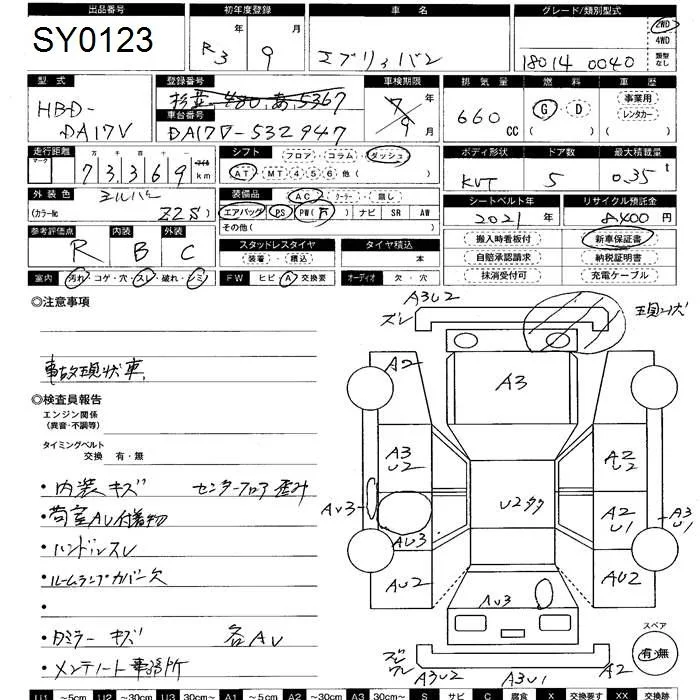 出品番号 初年度登録 車名 グレード/類別型式
SY0123 R3年 9月 エブリィバン 18014 0040 2WD
4WD
類型なし
型式 登録番号 車検期限 排気量 燃料 車歴
HBD-DA17V 杉並 480 あ 5367 7年 9月 660cc G・D ( ) 事業用 レンタカー ( )
車台番号
DA17V-532947
走行距離 シフト ボディ形状 ドア数 最大積載量
マーク 万 千 百 十 一 マイル
73,369 km フロア・コラム・ダッシュ
AT・MT 4 5 6 他( ) KVT 5 0.35t
外装色 シルバー 装備品 AC・クーラー・無し シートベルト年 リサイクル預託金
(カラーNo. Z2S) エアバッグ PS PW(F) ナビ SR AW 2021年 8400円
その他( )
参考評価点 内装 外装 スタッドレスタイヤ タイヤ積込 搬入時看板付 新車保証書
R B C 装着・積込 本 自賠承認請求 納税証明書
抹消受付可 充電ケーブル
室内 汚れ・コゲ・穴・スレ・破れ・シミ FW ヒビ・A・交換要 オーディオ 欠・穴
◎注意事項
事故現状車
◎検査員報告
エンジン関係
(異音・不調等)
タイミングベルト
交換 有・無
・内装キズ センターフロア歪み
・荷室AU付着物
・ハンドルスレ
・ルームランプカバー欠
・
・Dミラーキズ 各AU
・メンテノート事務所
A3U2
ズレ
現状
A2
A3
A3
U2
A2
U2
U2多々
AU3
AU3
A2
U1
A3
U1
AU2
AU2
AU3
ズレ
ワレ
A3U2
A3U1
A2
スペア
有・無
U1 ~5cm U2 ~30cm U3 30cm~ A1 ~5cm A2 ~30cm A3 30cm~ S サビ C 腐食 X 交換要す XX 交換跡